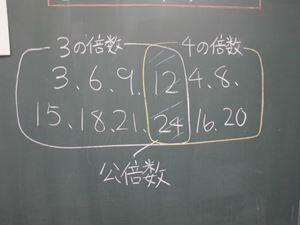 3の倍数 4の倍数
3、6、9、12 4、8、
15、18、21、24 16、20
公倍数